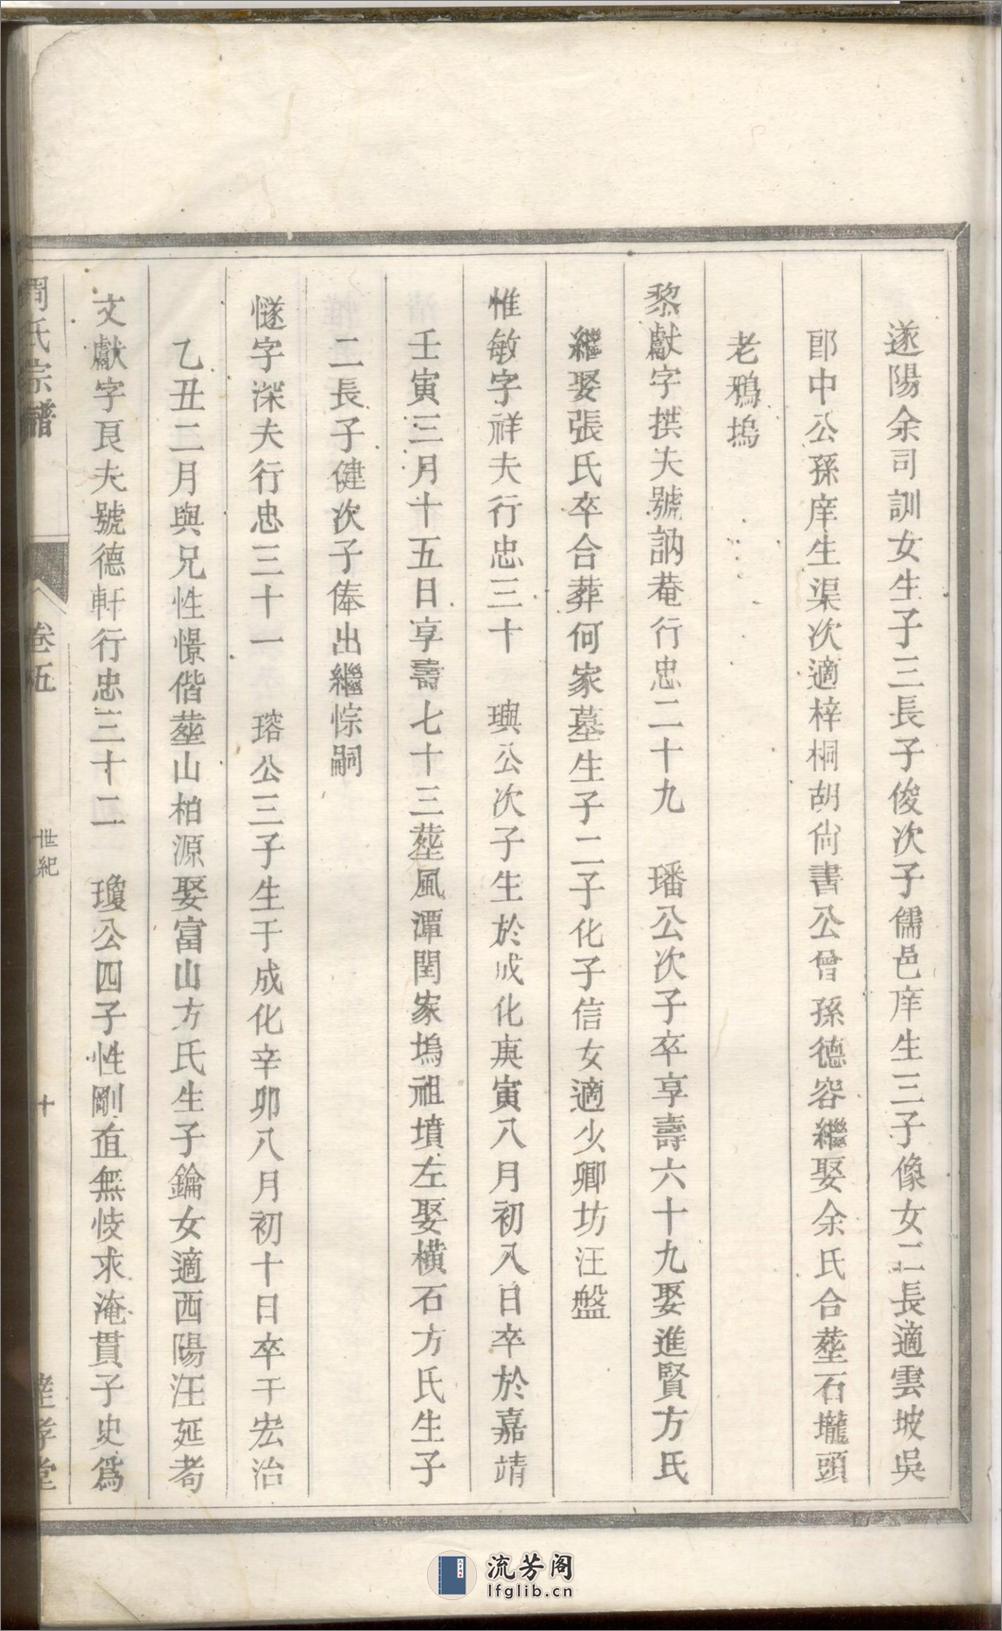 遂陽余司訓女生子三長子俊次子儒邑庠生三子像女二長適雲坡吳
郎中公孫庠生渠次適梓桐胡尙書公曾孫德容繼娶余氏合塟石壠頭
老鴉塢
黎獻字拱夫號訥菴行忠二十九 璠公次子卒享壽六十九娶進賢方氏
繼娶張氏卒合葬何家墓生子二子化子信女適少卿坊汪盤
惟敏字祥夫行忠三十 璵公次子生於成化庚寅八月初八日卒於嘉靖
壬寅三月十五日享壽七十三塟風潭閏家塢祖墳左娶橫石方氏生子
二長子健次子俸出繼悰嗣
㦬字深夫行忠三十一 瑢公三子生于成化辛卯八月初十日卒干宏治
乙丑二月與兄性憬偕塟山柏源娶富山方氏生子鑰女適西陽汪延耇
文獻字良夫號德軒行忠三十二 瓊公四子性剛直無忮求淹貫子史爲
周氏宗譜
卷五
世紀
十
達孝堂
流芳阁
lfglib.cn